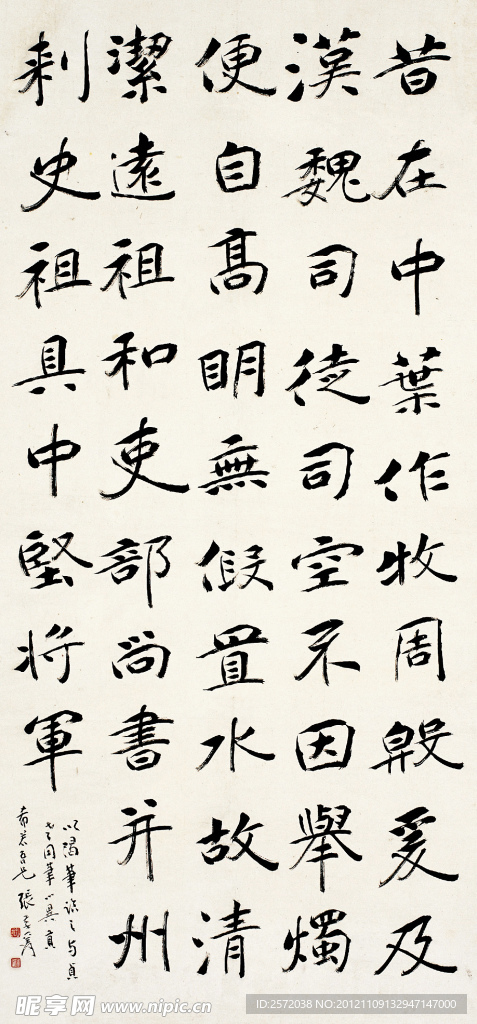 昔在中葉作牧周殷爰及
漢魏司徒司空不因舉燭
便自高明無假置水故清
潔遠祖和吏部尚書并州
刺史祖具中堅將軍
以渴筆臨之與
同筆
吾兄 張
昵享网 www.nipic.cn
ID:2572038 NO:20121109132947147000